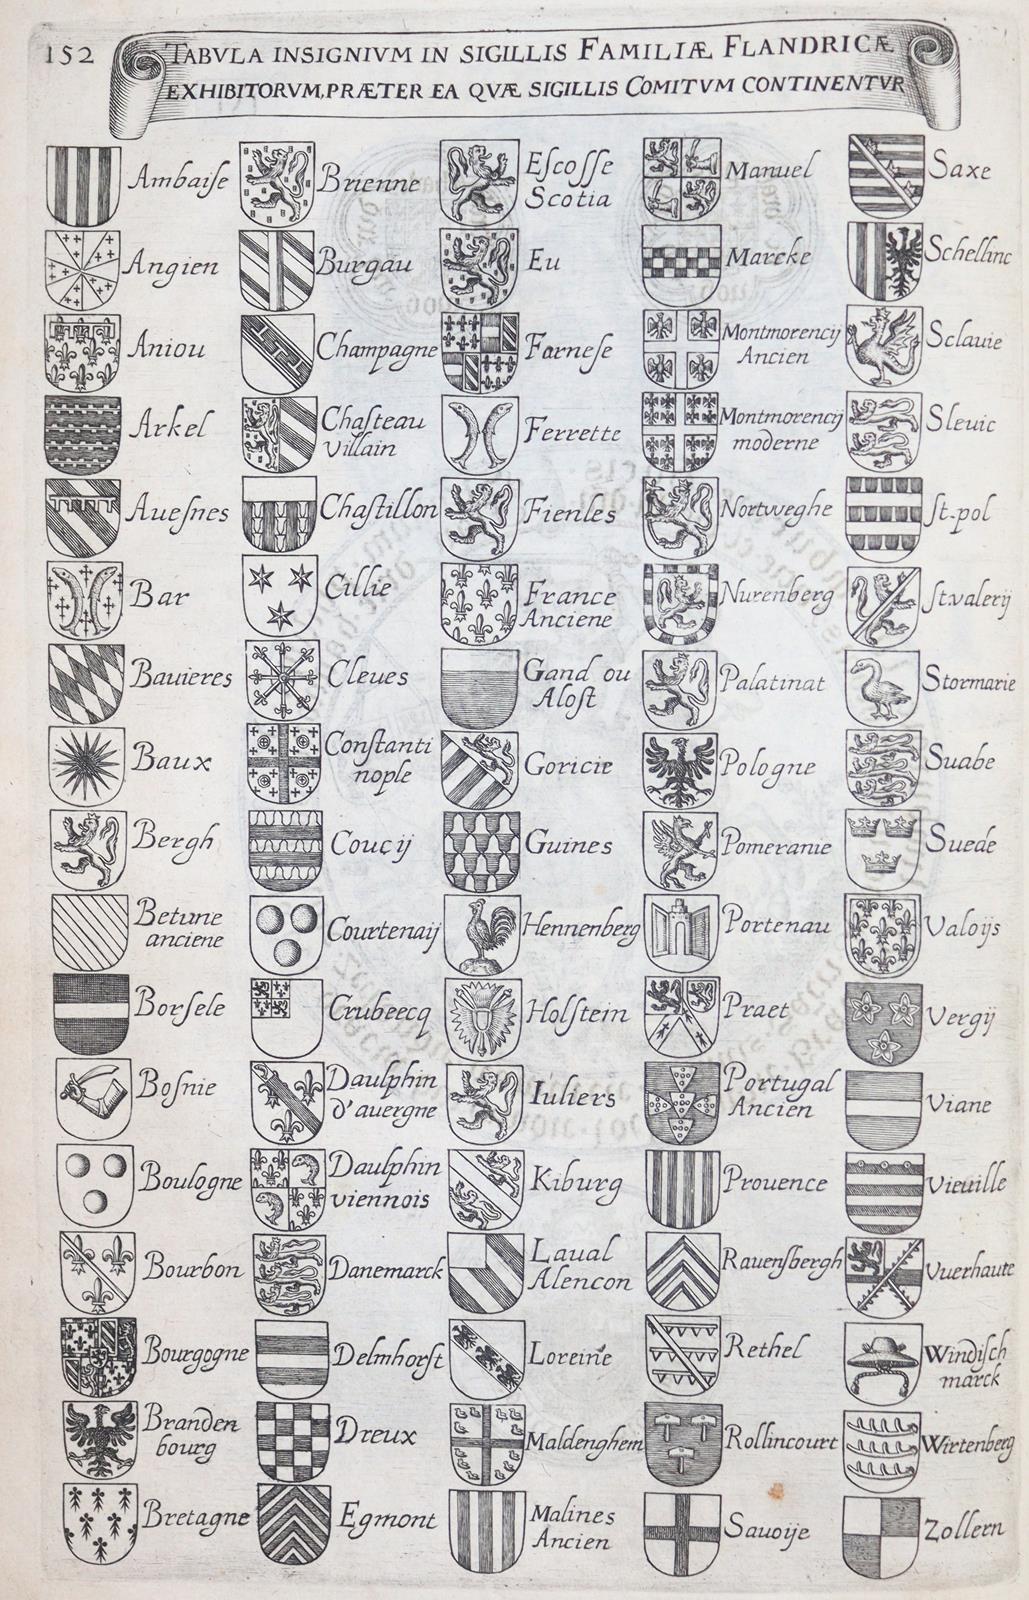 152
TABVLA INSIGNIVM IN SIGILLIS FAMILIÆ FLANDRICÆ
EXHIBITORVM, PRÆTER EA QVÆ SIGILLIS COMITVM CONTINENTVR
Ambaiſe
Angien
Aniou
Arkel
Aueſnes
Bar
Bauieres
Baux
Bergh
Betune
anciene
Borſele
Boſnie
Boulogne
Bourbon
Bourgogne
Branden
bourg
Bretagne
Brienne
Burgau
Champagne
Chaſteau
Villain
Chaſtillon
Cillie
Cleues
Conſtanti
nople
Coucij
Courtenaij
Crubeecq
Daulphin
d'auergne
Daulphin
viennois
Danemarck
Delmhorſt
Dreux
Egmont
Eſcoſſe
Scotia
Eu
Farneſe
Ferrette
Fienles
France
Anciene
Gand ou
Aloſt
Goricie
Guines
Hennenberg
Holſtein
Iuliers
Kiburg
Laual
Alencon
Loreine
Maldenghem
Malines
Ancien
Manuel
Marcke
Montmorencij
Ancien
Montmorencij
moderne
Nortweghe
Nurenberg
Palatinat
Pologne
Pomeranie
Portenau
Praet
Portugal
Ancien
Prouence
Rauenſbergh
Rethel
Rollincourt
Sauoije
Saxe
Schellinc
Sclauie
Sleuic
St.pol
St.valerij
Stormarie
Suabe
Suede
Valoijs
Vergij
Viane
Vieuille
Vuerhaute
Windiſch
marck
Wirtenberg
Zollern